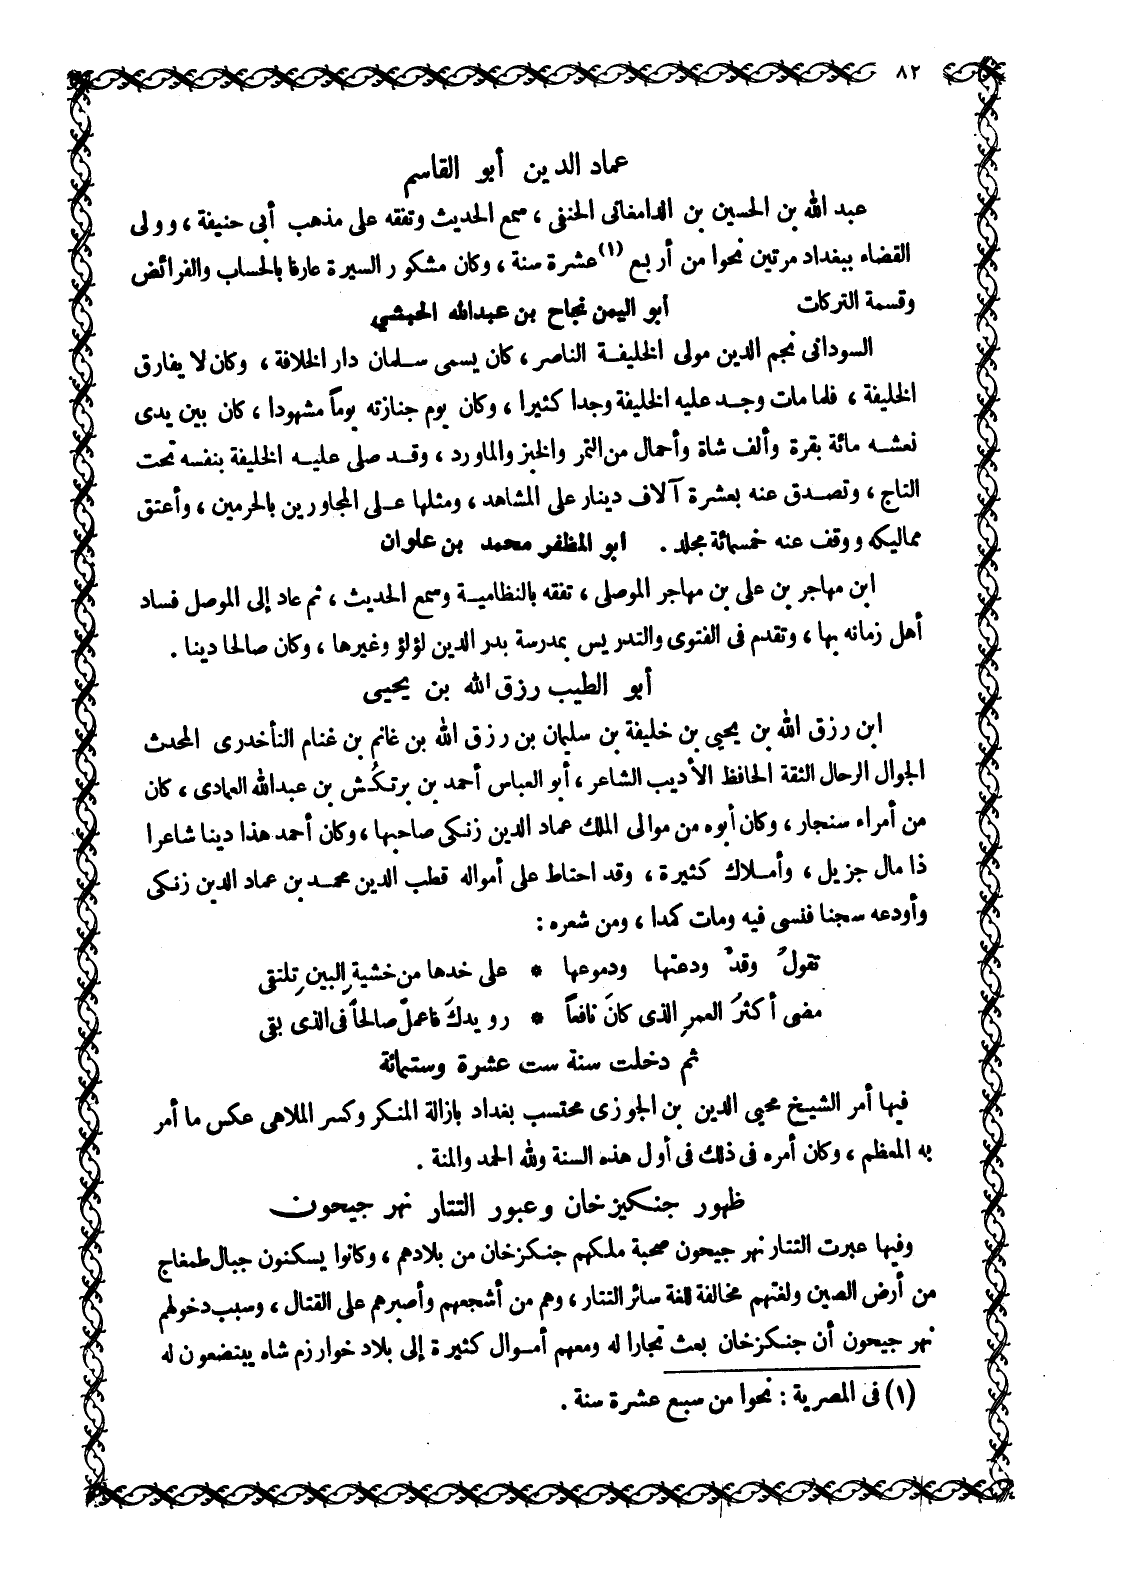 ٨٢
عماد الدين أبو القاسم
عبد الله بن الحسين بن الدامغانى الحنفى ، سمع الحديث وتفقه على مذهب أبى حنيفة ، وولى
القضاء ببغداد مرتين نحوا من أربع (١) عشرة سنة ، وكان مشكور السيرة عارفا بالحساب والفرائض
وقسمة التركات أبو اليمن نجاح بن عبدالله الحبشي
السودانى نجم الدين مولى الخليفة الناصر ، كان يسمى سلمان دار الخلافة ، وكان لا يفارق
الخليفة ، فلما مات وجد عليه الخليفة وجدا كثيرا ، وكان يوم جنازته يوماً مشهودا ، كان بين يدى
نعشه مائة بقرة وألف شاة وأحمال من التمر والخبز والماورد ، وقد صلى عليه الخليفة بنفسه تحت
التاج ، وتصدق عنه بعشرة آلاف دينار على المشاهد ، ومثلها على المجاورين بالحرمين ، وأعتق
مماليكه ووقف عنه خمسمائة مجلد . ابو المظفر محمد بن علوان
ابن مهاجر بن على بن مهاجر الموصلى ، تفقه بالنظامية وسمع الحديث ، ثم عاد إلى الموصل فساد
أهل زمانه بها ، وتقدم فى الفتوى والتدريس بمدرسة بدر الدين لؤلؤ وغيرها ، وكان صالحا دينا .
أبو الطيب رزق الله بن يحيى
ابن رزق الله بن يحيى بن خليفة بن سليمان بن رزق الله بن غانم بن غنام التأخدرى المحدث
الجوال الرحال الثقة الحافظ الأديب الشاعر ، أبو العباس أحمد بن برتكُش بن عبدالله العمادى ، كان
من أمراء سنجار ، وكان أبوه من موالى الملك عماد الدين زنكى صاحبها ، وكان أحمد هذا دينا شاعرا
ذا مال جزيل ، وأملاك كثيرة ، وقد احتاط على أمواله قطب الدين محمد بن عماد الدين زنكى
وأودعه سجنا فنسى فيه ومات كمدا ، ومن شعره :
تقولُ وقدْ ودعتها ودموعها * على خدها من خشيةِ البينِ تلتقى
مضى أكثرُ العمرِ الذى كانَ نافعاً * رويدكَ فاعملْ صالحاً فى الذى بقى
ثم دخلت سنة ست عشرة وستمائة
فيها أمر الشيخ محيى الدين بن الجوزى محتسب بغداد بازالة المنكر وكسر الملاهى عكس ما أمر
به المعظم ، وكان أمره فى ذلك فى أول هذه السنة ولله الحمد والمنة .
ظهور جنكيزخان وعبور التتار نهر جيحون
وفيها عبرت التتار نهر جيحون صحبة ملكهم جنكزخان من بلادهم ، وكانوا يسكنون جبال طمغاج
من أرض الصين ولغتهم مخالفة للغة سائر التتار ، وهم من أشجعهم وأصبرهم على القتال ، وسبب دخولهم
نهر جيحون أن جنكزخان بعث تجارا له ومعهم أموال كثيرة إلى بلاد خوارزم شاه يبتضعون له
(١) فى المصرية : نحوا من سبع عشرة سنة .